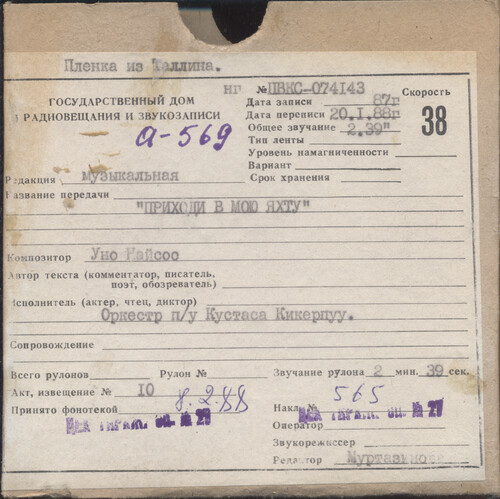 Пленка из Таллина.
нг № ПВКС-074143
ГОСУДАРСТВЕННЫЙ ДОМ
РАДИОВЕЩАНИЯ И ЗВУКОЗАПИСИ
а-569
Дата записи 87г
Дата переписи 20.I.88г
Общее звучание 2.39"
Тип ленты
Уровень намагниченности
Вариант
Срок хранения
Скорость
38
Редакция музыкальная
Название передачи
"ПРИХОДИ В МОЮ ЯХТУ"
Композитор Уно Найсоо
Автор текста (комментатор, писатель,
поэт, обозреватель)
Исполнитель (актер, чтец, диктор)
Оркестр п/у Кустаса Кикерпуу.
Сопровождение
Всего рулонов Рулон № Звучание рулона 2 мин. 39 сек.
Акт, извещение № 10
Принято фонотекой 8.2.88
Накл. 565
Оператор
Звукорежиссер
Редактор